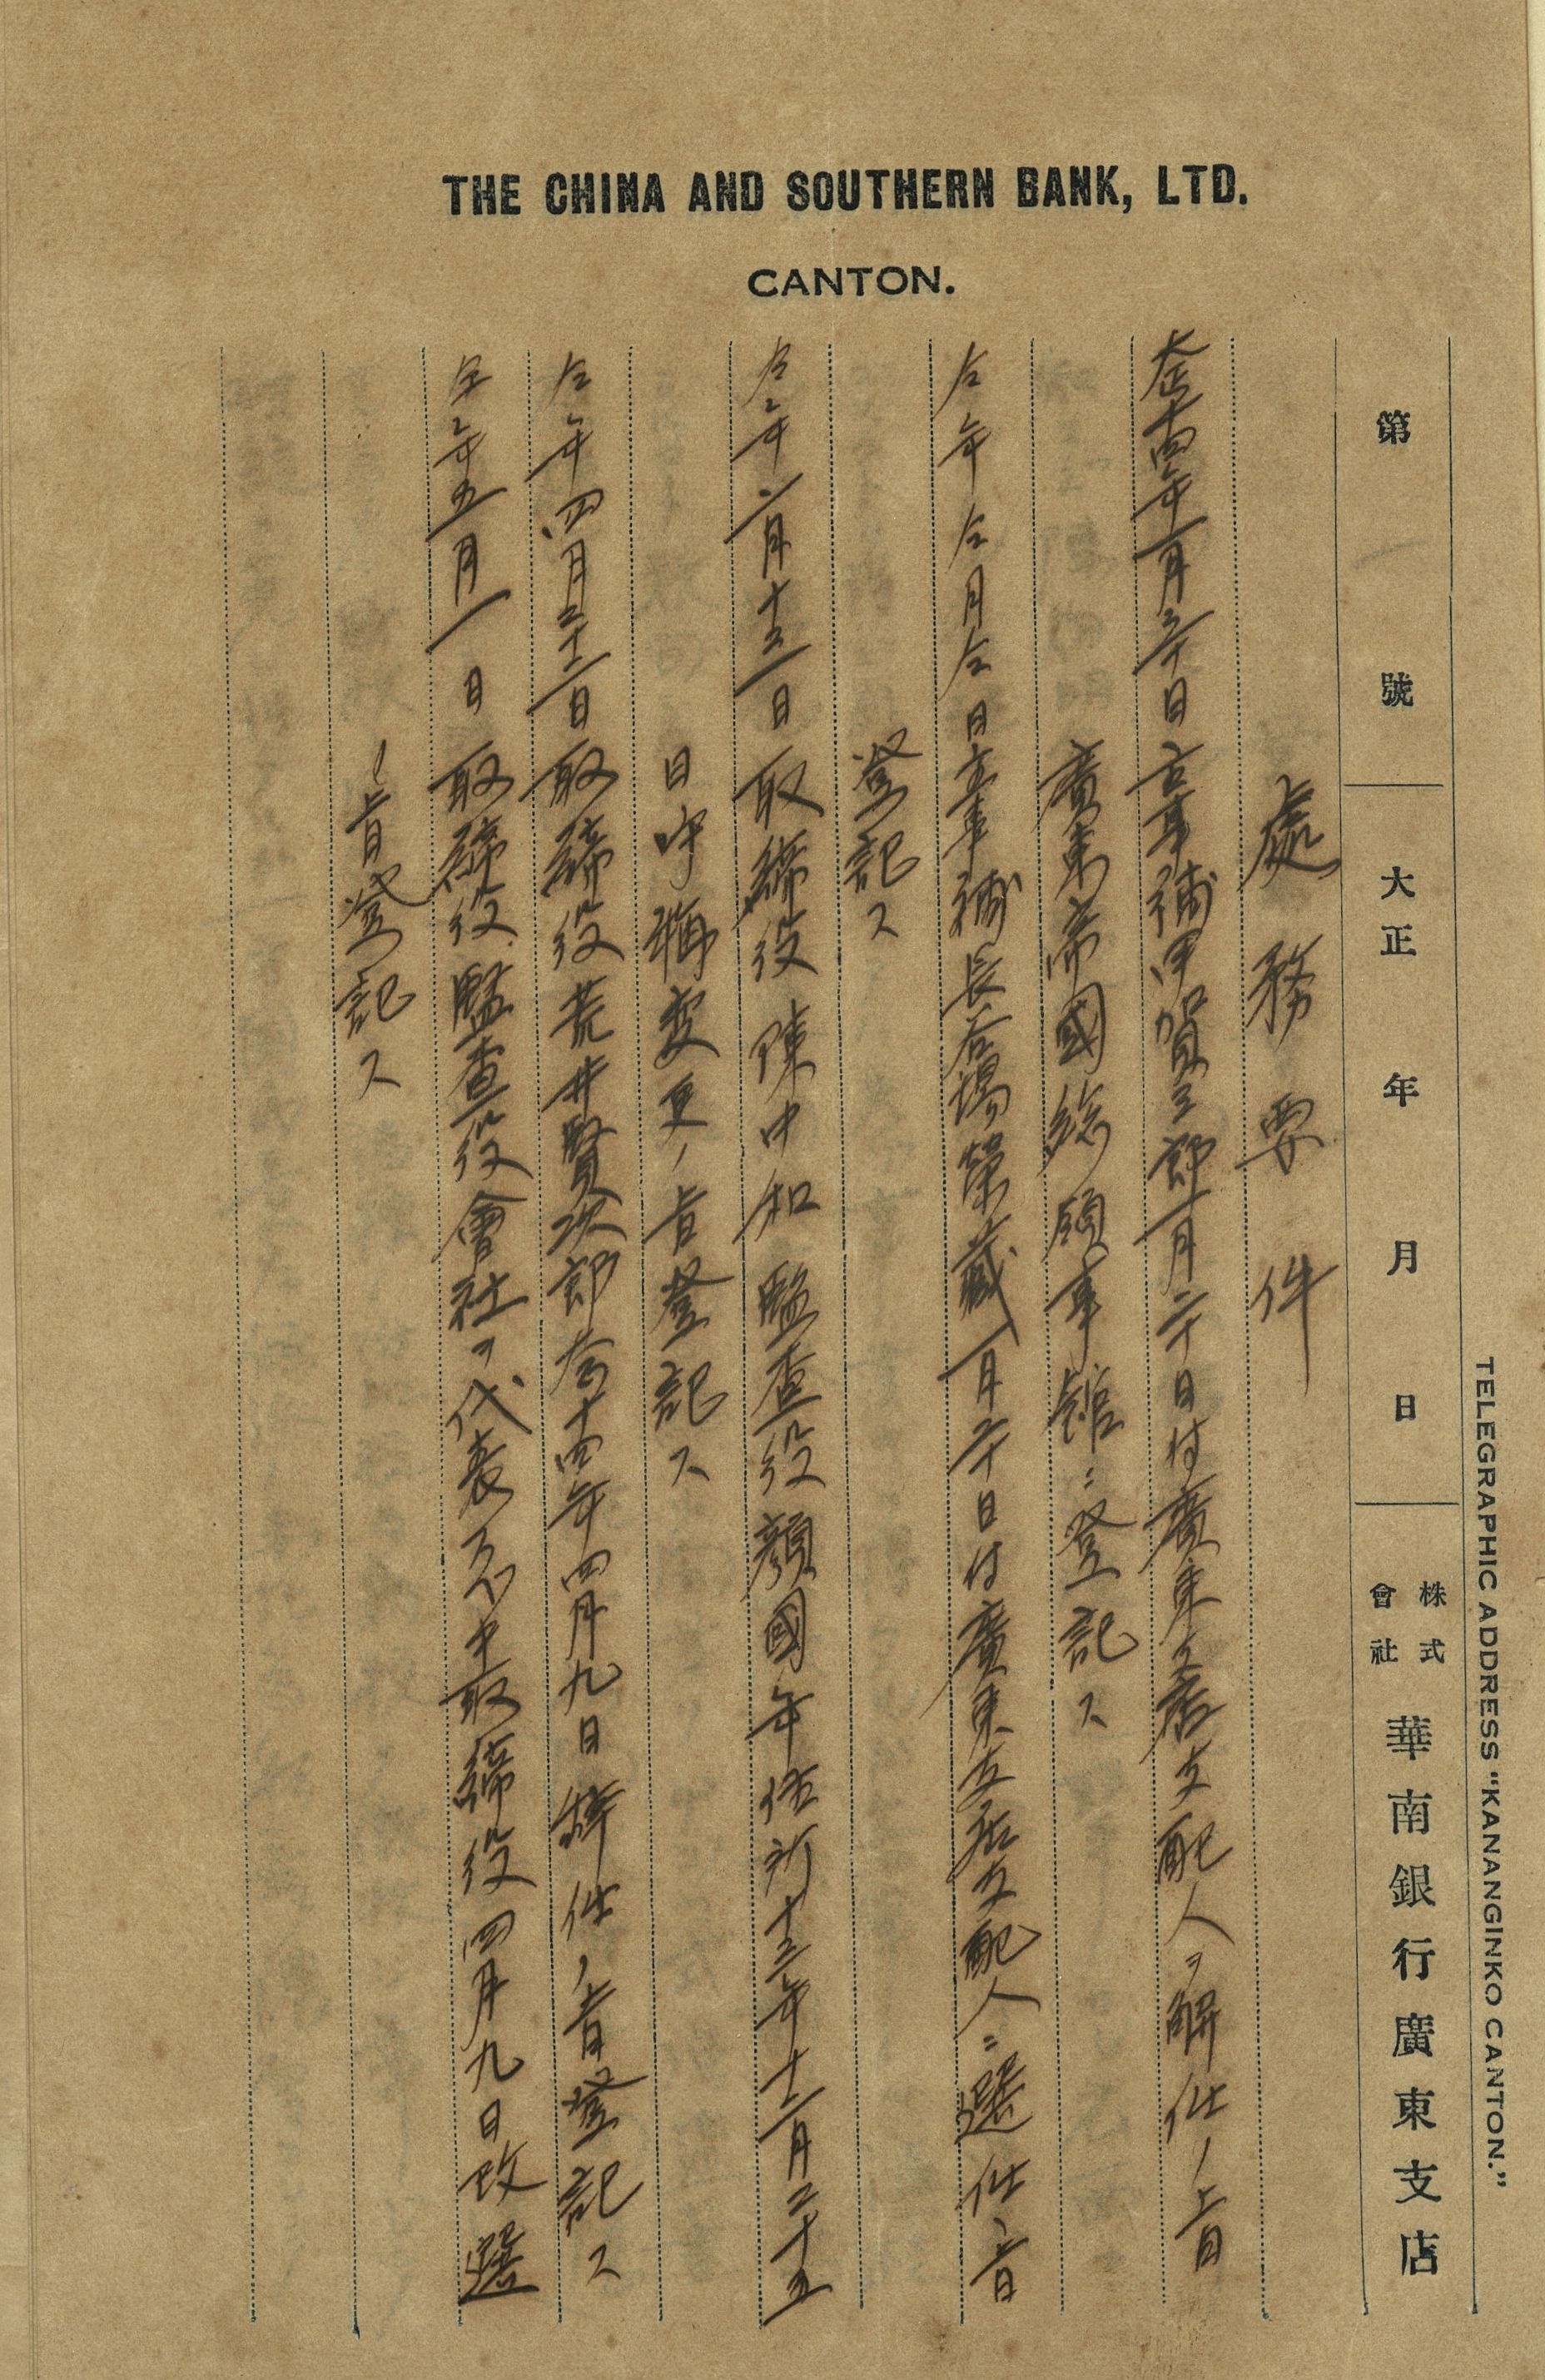 THE CHINA AND SOUTHERN BANK, LTD.
CANTON.
TELEGRAPHIC ADDRESS "KANANGINKO CANTON."
第 號 大正 年 月 日 株式會社 華南銀行廣東支店
處務要件
大正十四年一月三十日 立事補甲賀三郎一月二十日付廣東支店支配人ヲ解任ノ旨
廣東帝國総領事館ニ登記ス
仝年仝月仝日 立事補長谷場榮藏一月二十日付廣東支店支配人ニ選任ノ旨
登記ス
仝年二月十三日 取締役陳中和監査役顔國年住所十三年十二月二十五
日呼稱変更ノ旨登記ス
仝年四月二十二日 取締役荒井賢次郎大正十四年四月九日辞任ノ旨登記ス
仝年五月一日 取締役監査役會社ヲ代表スベキ取締役四月九日改選
ノ旨登記ス